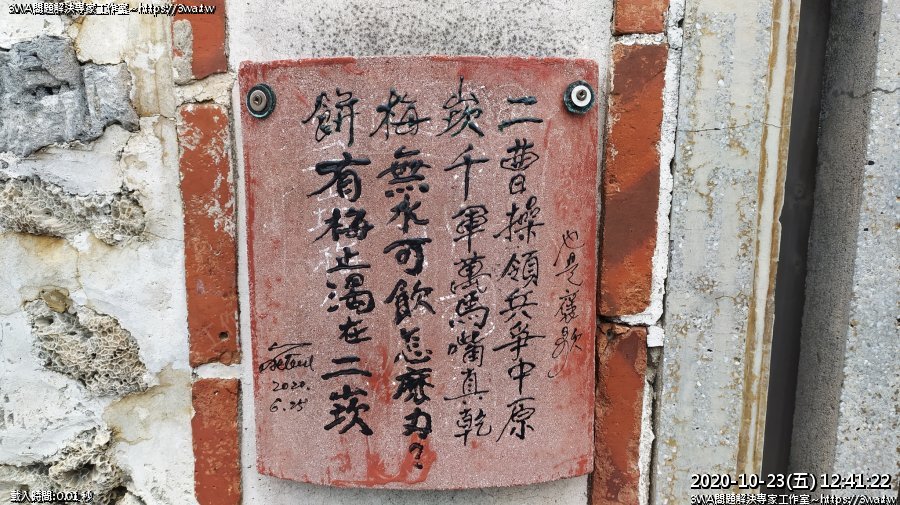 3WA問題解決專家工作室~https://3wa.tw
也是褒歌
二曹操領兵爭中原
崁千軍萬馬嘴真乾
梅無水可飲怎麼办?
餅有梅止渴在二崁
2020.
6.25
2020-10-23(五) 12:41:22
載入時間:0.01 秒
3WA問題解決專家工作室~https://3wa.tw